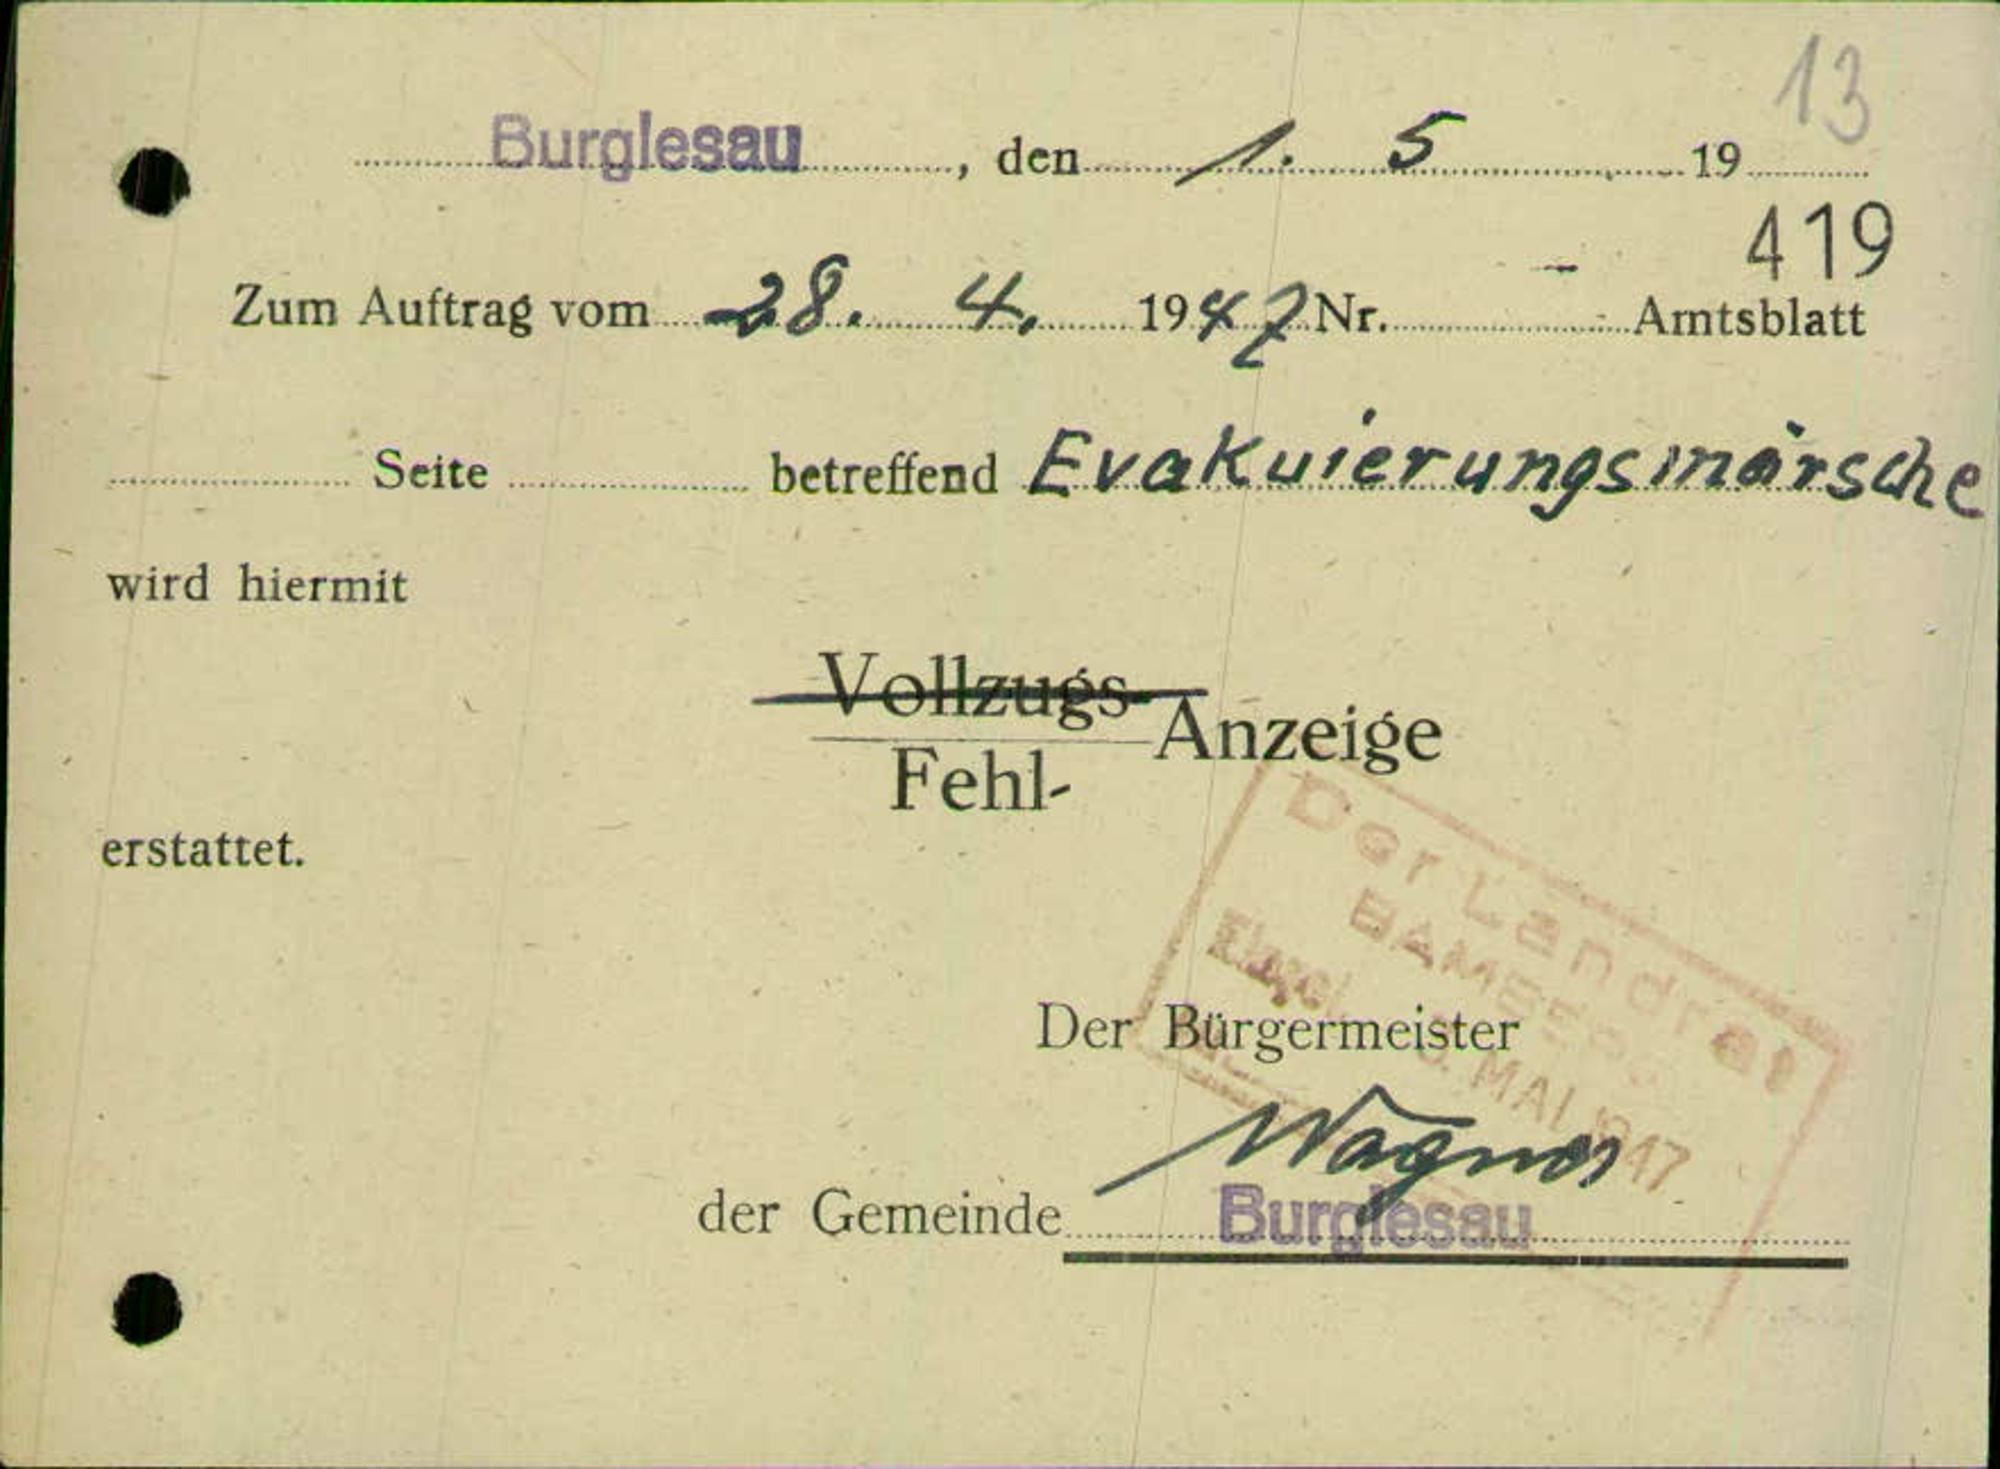 13
Burglesau, den 1. 5 19
419
Zum Auftrag vom 28. 4. 1947 Nr. - Amtsblatt
Seite betreffend Evakuierungsmärsche
wird hiermit
Vollzugs-
Anzeige
Fehl-
erstattet.
Der Landrat
BAMBERG
Der Bürgermeister
MAI 1947
Wagner
der Gemeinde Burglesau